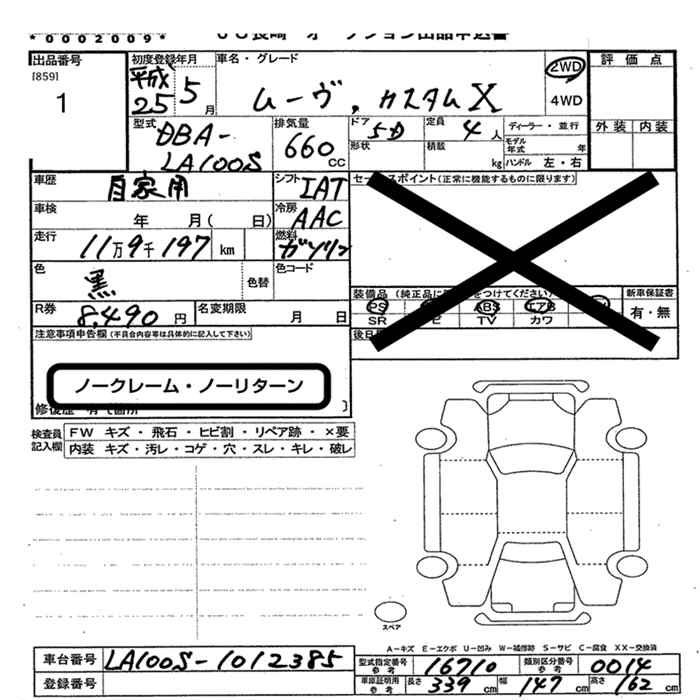 *0002009* オークション出品申込書
出品番号 初度登録年月 車名・グレード 2WD 評価点
[859] 平成
1 25 5月 ムーヴ, カスタムX 4WD
型式 排気量 ドア 5D 定員 4人 ディーラー・並行 外装 内装
DBA- 660CC 形状 積載 kg モデル年式 年
LA100S ハンドル 左・右
車歴 自家用 シフト IAT セールスポイント(正常に機能するものに限ります)
車検 年 月( 日) 冷房 AAC
走行 11万9千197 km 燃料 ガソリン
色 黒 色替 色コード
装備品 (純正品に をつけてください) 新車保証書
R券 8,490円 名変期限 月 日 PS ABS エアB 有・無
SR TV カワ
注意事項申告欄(不具合内容等は具体的に記入して下さい) 後日
ノークレーム・ノーリターン
修復歴 有 箇所
検査員記入欄 FW キズ・飛石・ヒビ割・リペア跡・×要
内装 キズ・汚レ・コゲ・穴・スレ・キレ・破レ
スペア
A-キズ E-エクボ U-凹み W-補修跡 S-サビ C-腐食 XX-交換済
車台番号 LA100S-1012385 型式指定番号 参考 16710 類別区分番号 参考 0014
登録番号 車庫証明用 参考 長さ 339cm 幅 147cm 高さ 162cm